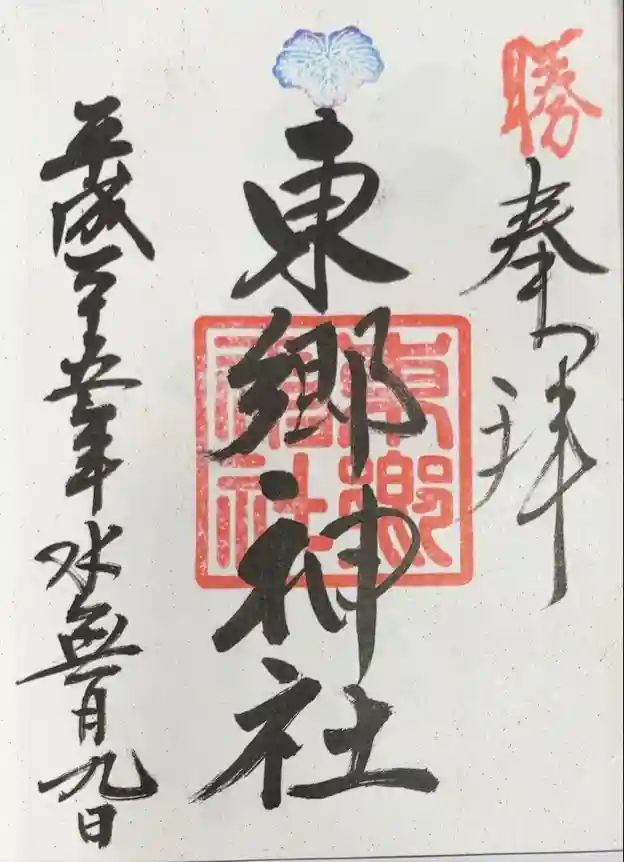 勝
奉拝
東郷神社
東郷
神社
平成二十五年水無月九日